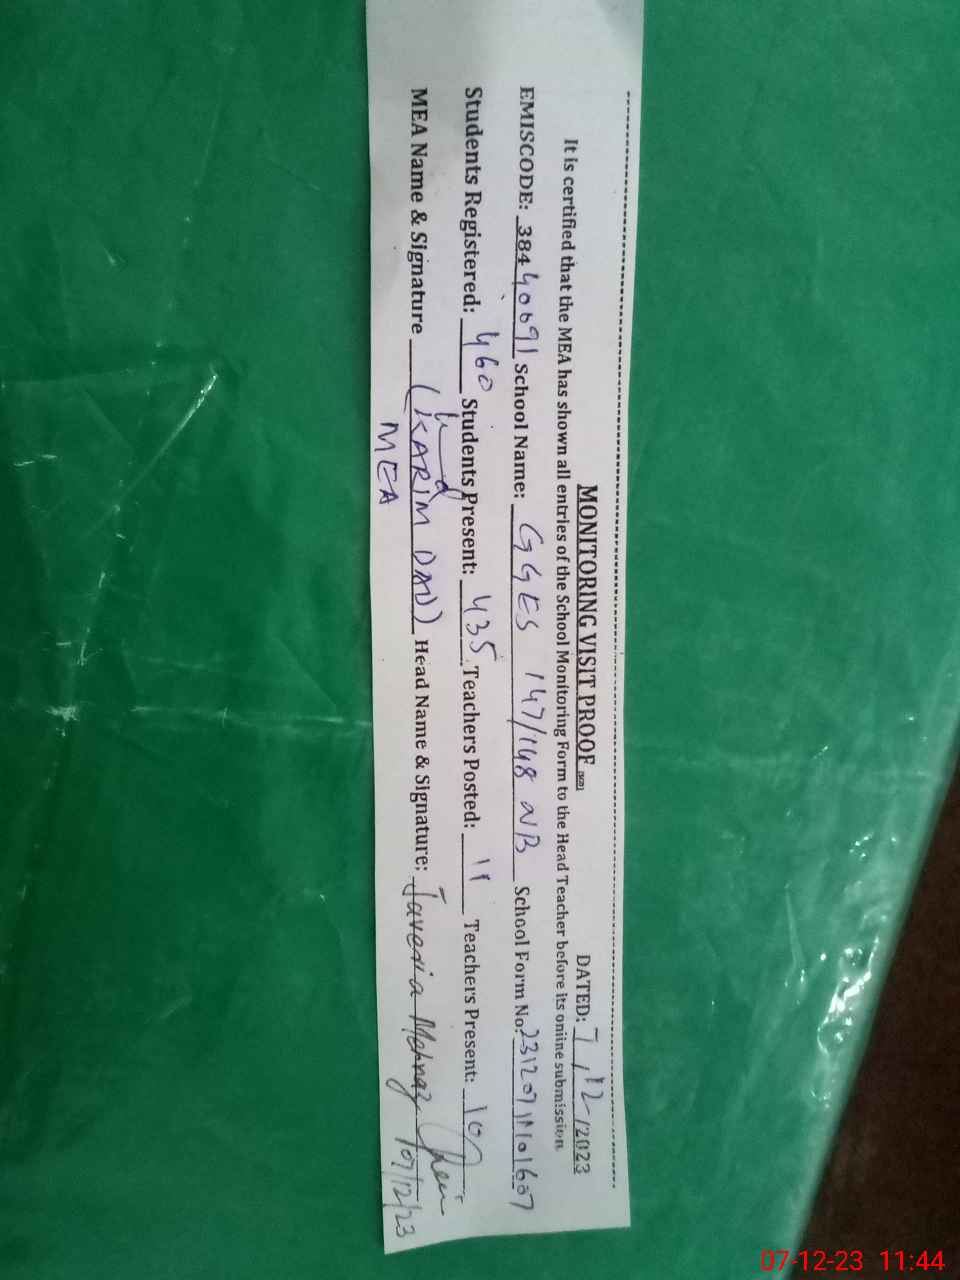 MONITORING VISIT PROOF DATED: 7/12/2023
It is certified that the MEA has shown all entries of the School Monitoring Form to the Head Teacher before its online submission
EMISCODE: 38440091 School Name: GGES 147/148 NB School Form No.
Students Registered: 460 Students Present: 435 Teachers Posted: 11 Teachers Present: 10
MEA Name & Signature (KARIM DAD) Head Name & Signature: Javeria Mehnaz 07/12/23
MEA
07-12-23 11:44